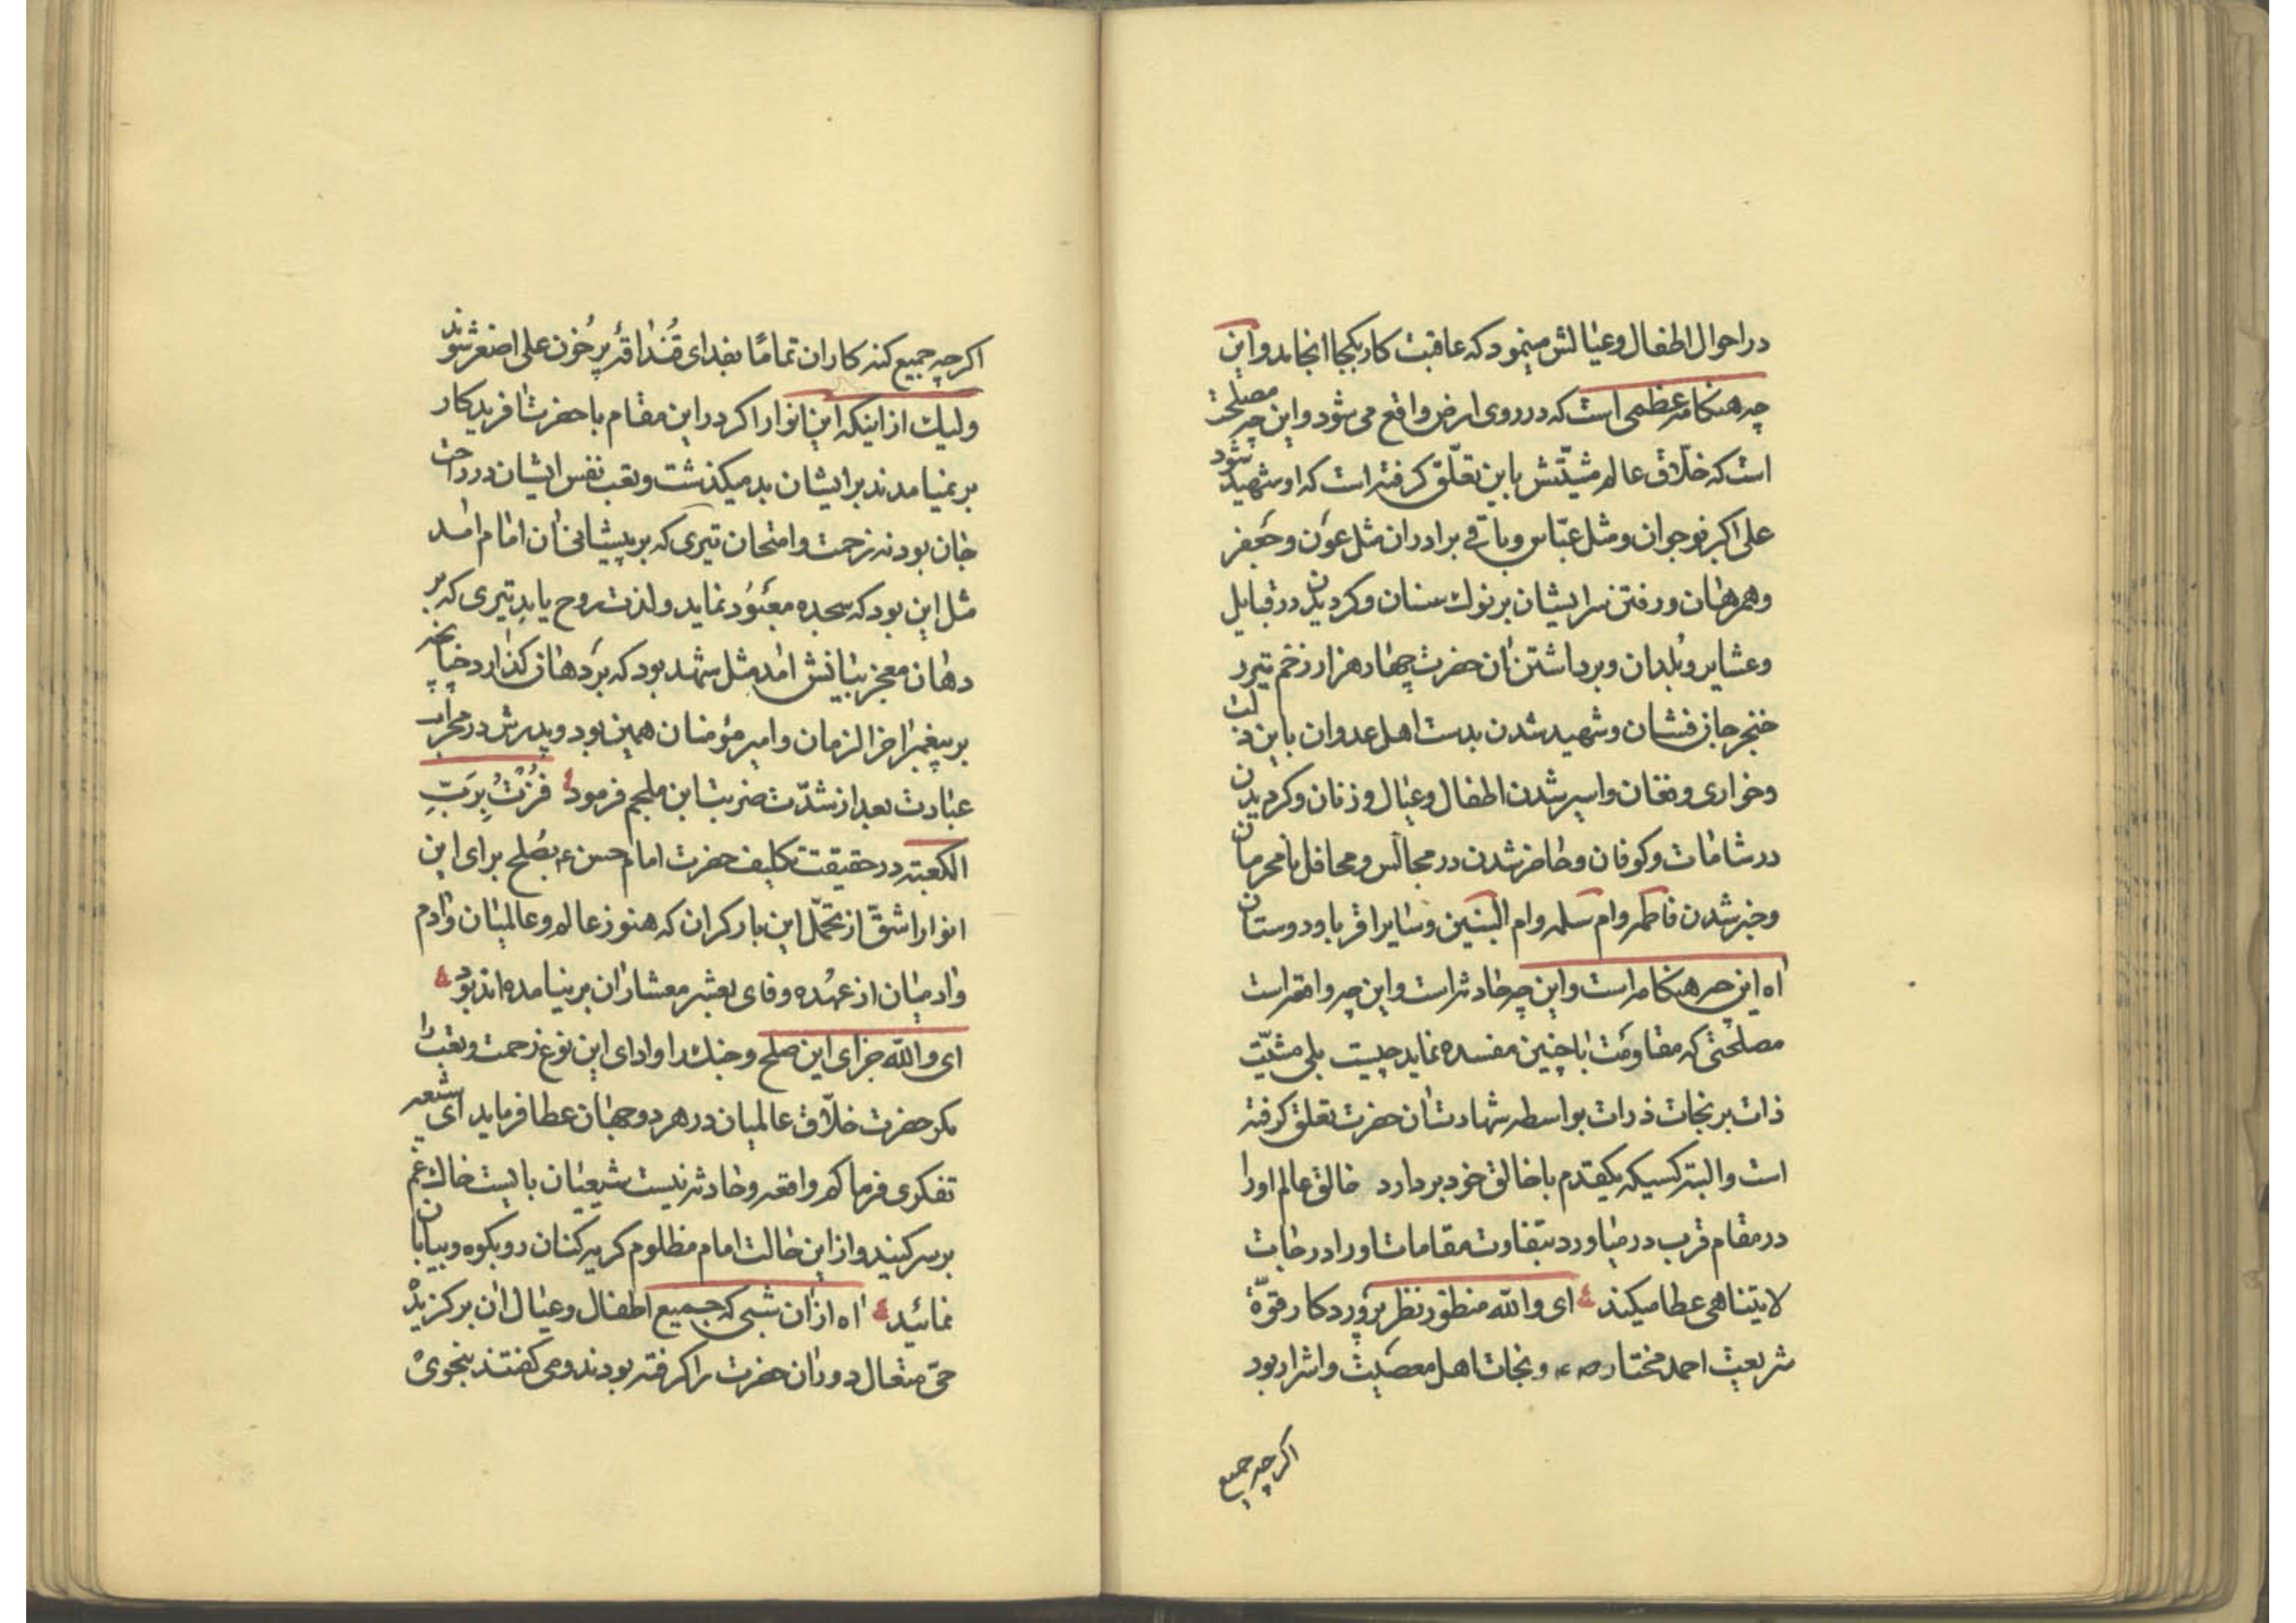 در احوال اطفال و عیالش مینمود که عاقبت کار بکجا انجامد و این
چه هنگامه عظمی است که در روی ارض واقع می شود و این چه مصلحت
است که خلّاق عالم مشیّتش باین تعلّق گرفته است که او شهید شود
علی اکبر نوجوان و مثل عبّاس و باقی برادران مثل عون و جعفر
و همرهان و رفتن سر ایشان بر نوك سنان و کردیدن در قبایل
و عشایر و بُلدان و برداشتن آن حضرت چهار هزار زخم تیر و
خنجر جان فشان و شهید شدن بدست اهل عدوان باین ذلت
و خواری و فغان و اسیر شدن اطفال و عیال و زنان و کردیدن
در شامات و کوفان و حاضر شدن در مجالس و محافل نامحرمان
و خبر شدن فاطمه و ام سلمه و ام البنین و سایر اقربا و دوستان
آه این چه هنکامه است و این چه حادثه است و این چه واقعه است
مصلحتی که مقاومت با چنین مفسده نماید چیست بلی مشیّت
ذات بر نجات ذرات بواسطه شهادت آن حضرت تعلق کرفته
است و البته کسیکه یکقدم با خالق خود بردارد خالق عالم او را
در مقام قرب در میاورد بتفاوت مقامات او را درجات
لا یتناهی عطا میکند ای والله منظور نظر پروردکار قوّة
شریعت احمد مختار صه و نجات اهل معصیت و اشرار بود
اکر چه جمیع
اکر چه جمیع کنه کاران تمامًا بفدای قُنداقهٔ پر خون علی اصغر شوند
ولیك از اینکه این انوار اکر در این مقام با حضرت آفریدکار
بر نمیامدند بر ایشان بد میکذشت و تعب نفس ایشان در راحت
جان بود نه زحمت و امتحان تیری که بر پیشانی آن امام آمد
مثل این بود که سجده معبُود نماید و لذت روح یابد تیری که بر
دهان معجز بیانش آمد مثل شهد بود که بر دهان کذارد چنانچه
بر پیغمبر آخر الزمان و امیر مؤمنان همین بود و پدرش در محراب
عبادت بعد از شدّت ضربت ابن ملجم فرمود فُزْتُ بِرَبِّ
الکعبته در حقیقت تکلیف حضرت امام حسن ع بصُلح برای این
انوار اشقّ از تحمّل این بار کران که هنوز عالم و عالمیان و آدم
و آدمیان از عهُده وفای بعشر معشار آن بر نیامده اند بود
ای والله جزای این صلح و جنك را و ادای این نوع زحمت و تعب را
مکر حضرت خلّاق عالمیان در هر دو جهان عطا فرماید ای شیعه
تفکری فرما کم واقعه و حادثه نیست شیعیان بایست خاك غم
بر سر کنید و از این حالت امام مظلوم کریه کنان رو بکوه و بیابان
نمائید آه از آن شبی که جمیع اطفال و عیال آن بر کزیدهٔ
حیّ متعال دور آن حضرت را کرفته بودند و می کفتند بنجوی